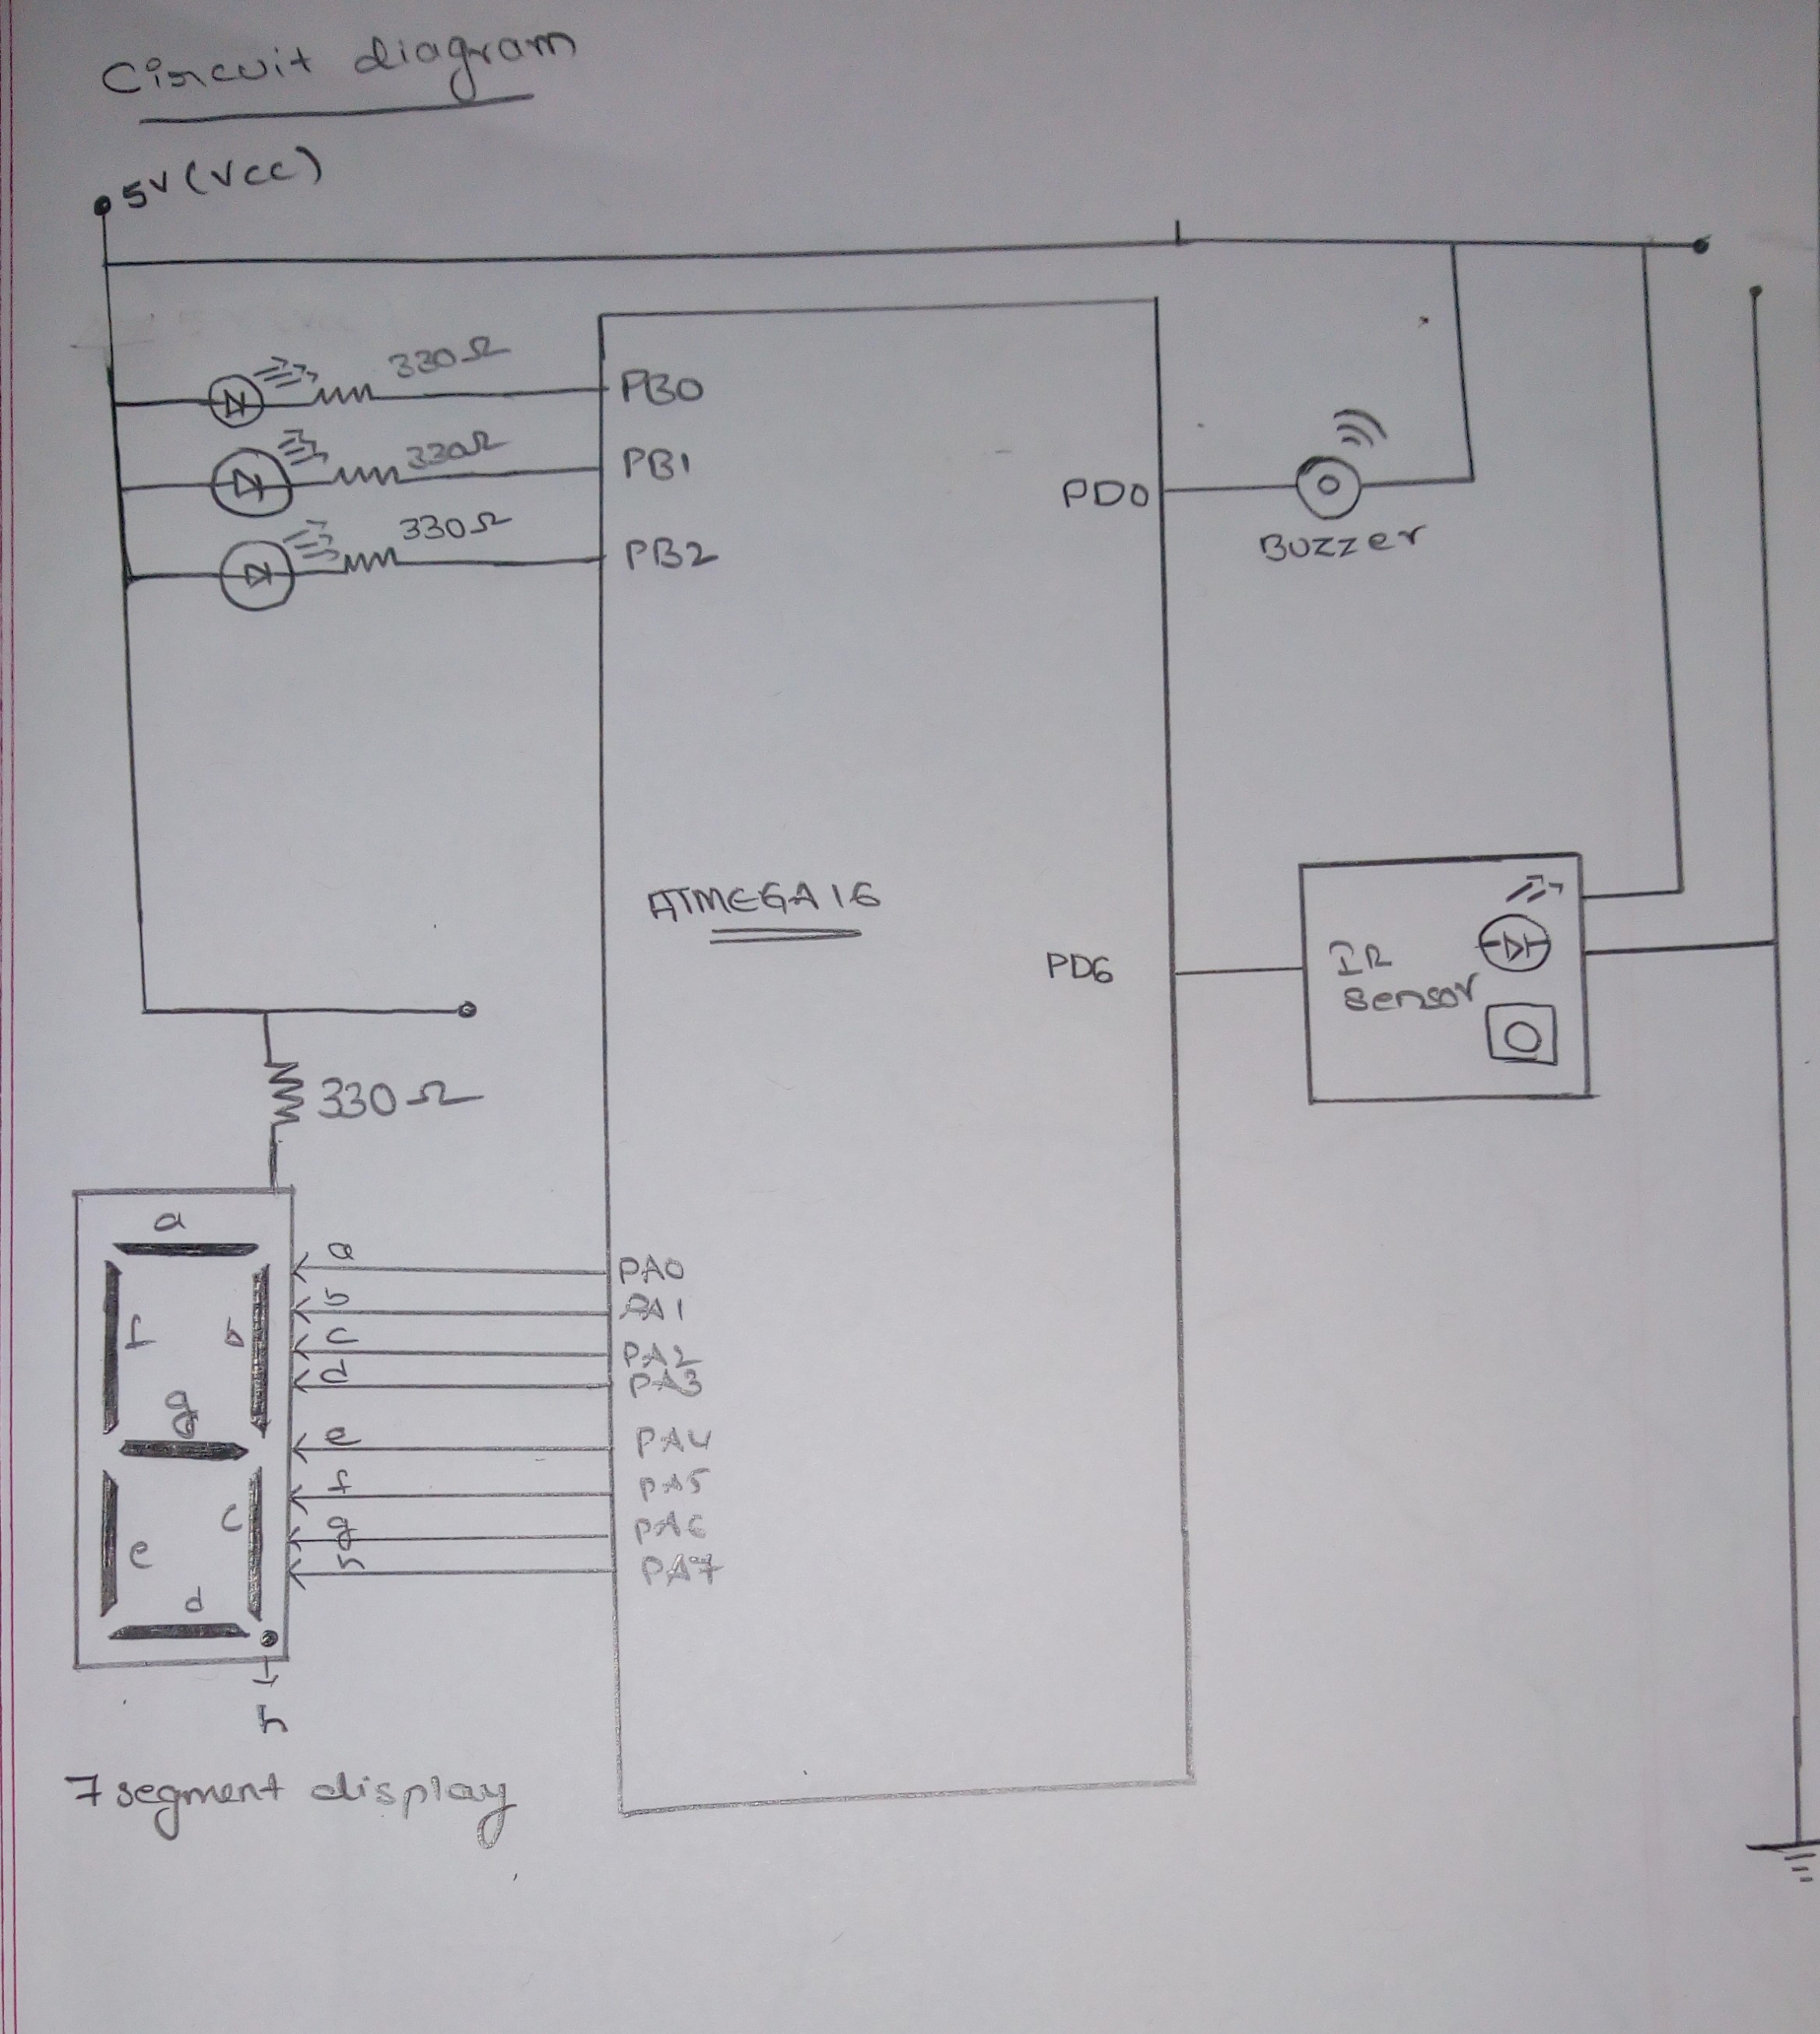 Circuit diagram
5V (VCC)
330Ω
PB0
330Ω
PB1
330Ω
PB2
PD0
Buzzer
ATMEGA16
PD6
IR
Sensor
330Ω
a
f
b
g
e
c
d
h
a
PA0
b
PA1
c
PA2
d
PA3
e
PA4
f
PA5
g
PA6
h
PA7
7 segment display